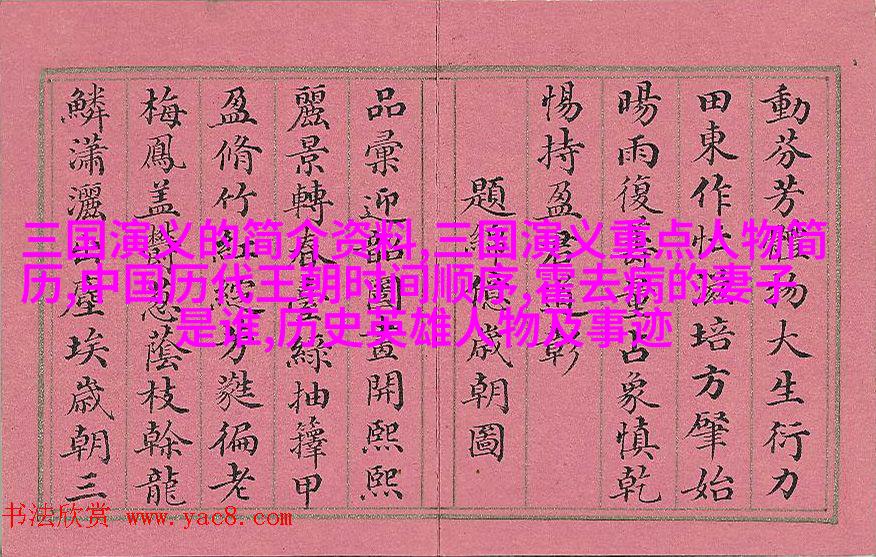 動芬芳物大生衍力
田東作忙培方肇始
暘雨復占象慎乾
惕持盈君彰
題億歲朝圖
品彙迎韶圖畫開熙熙
麗景轉春臺綠抽籜甲
盈脩竹紅芳蕤徧老
梅鳳蓋鬱葱蔭枝榦龍
鱗瀟灑出塵埃歲朝三
三国演义的简介资料,三国演义重点人物简
历,中国历代王朝时间顺序,霍去病的妻子
是谁,历史英雄人物及事迹
书法欣赏 www.yac8.com